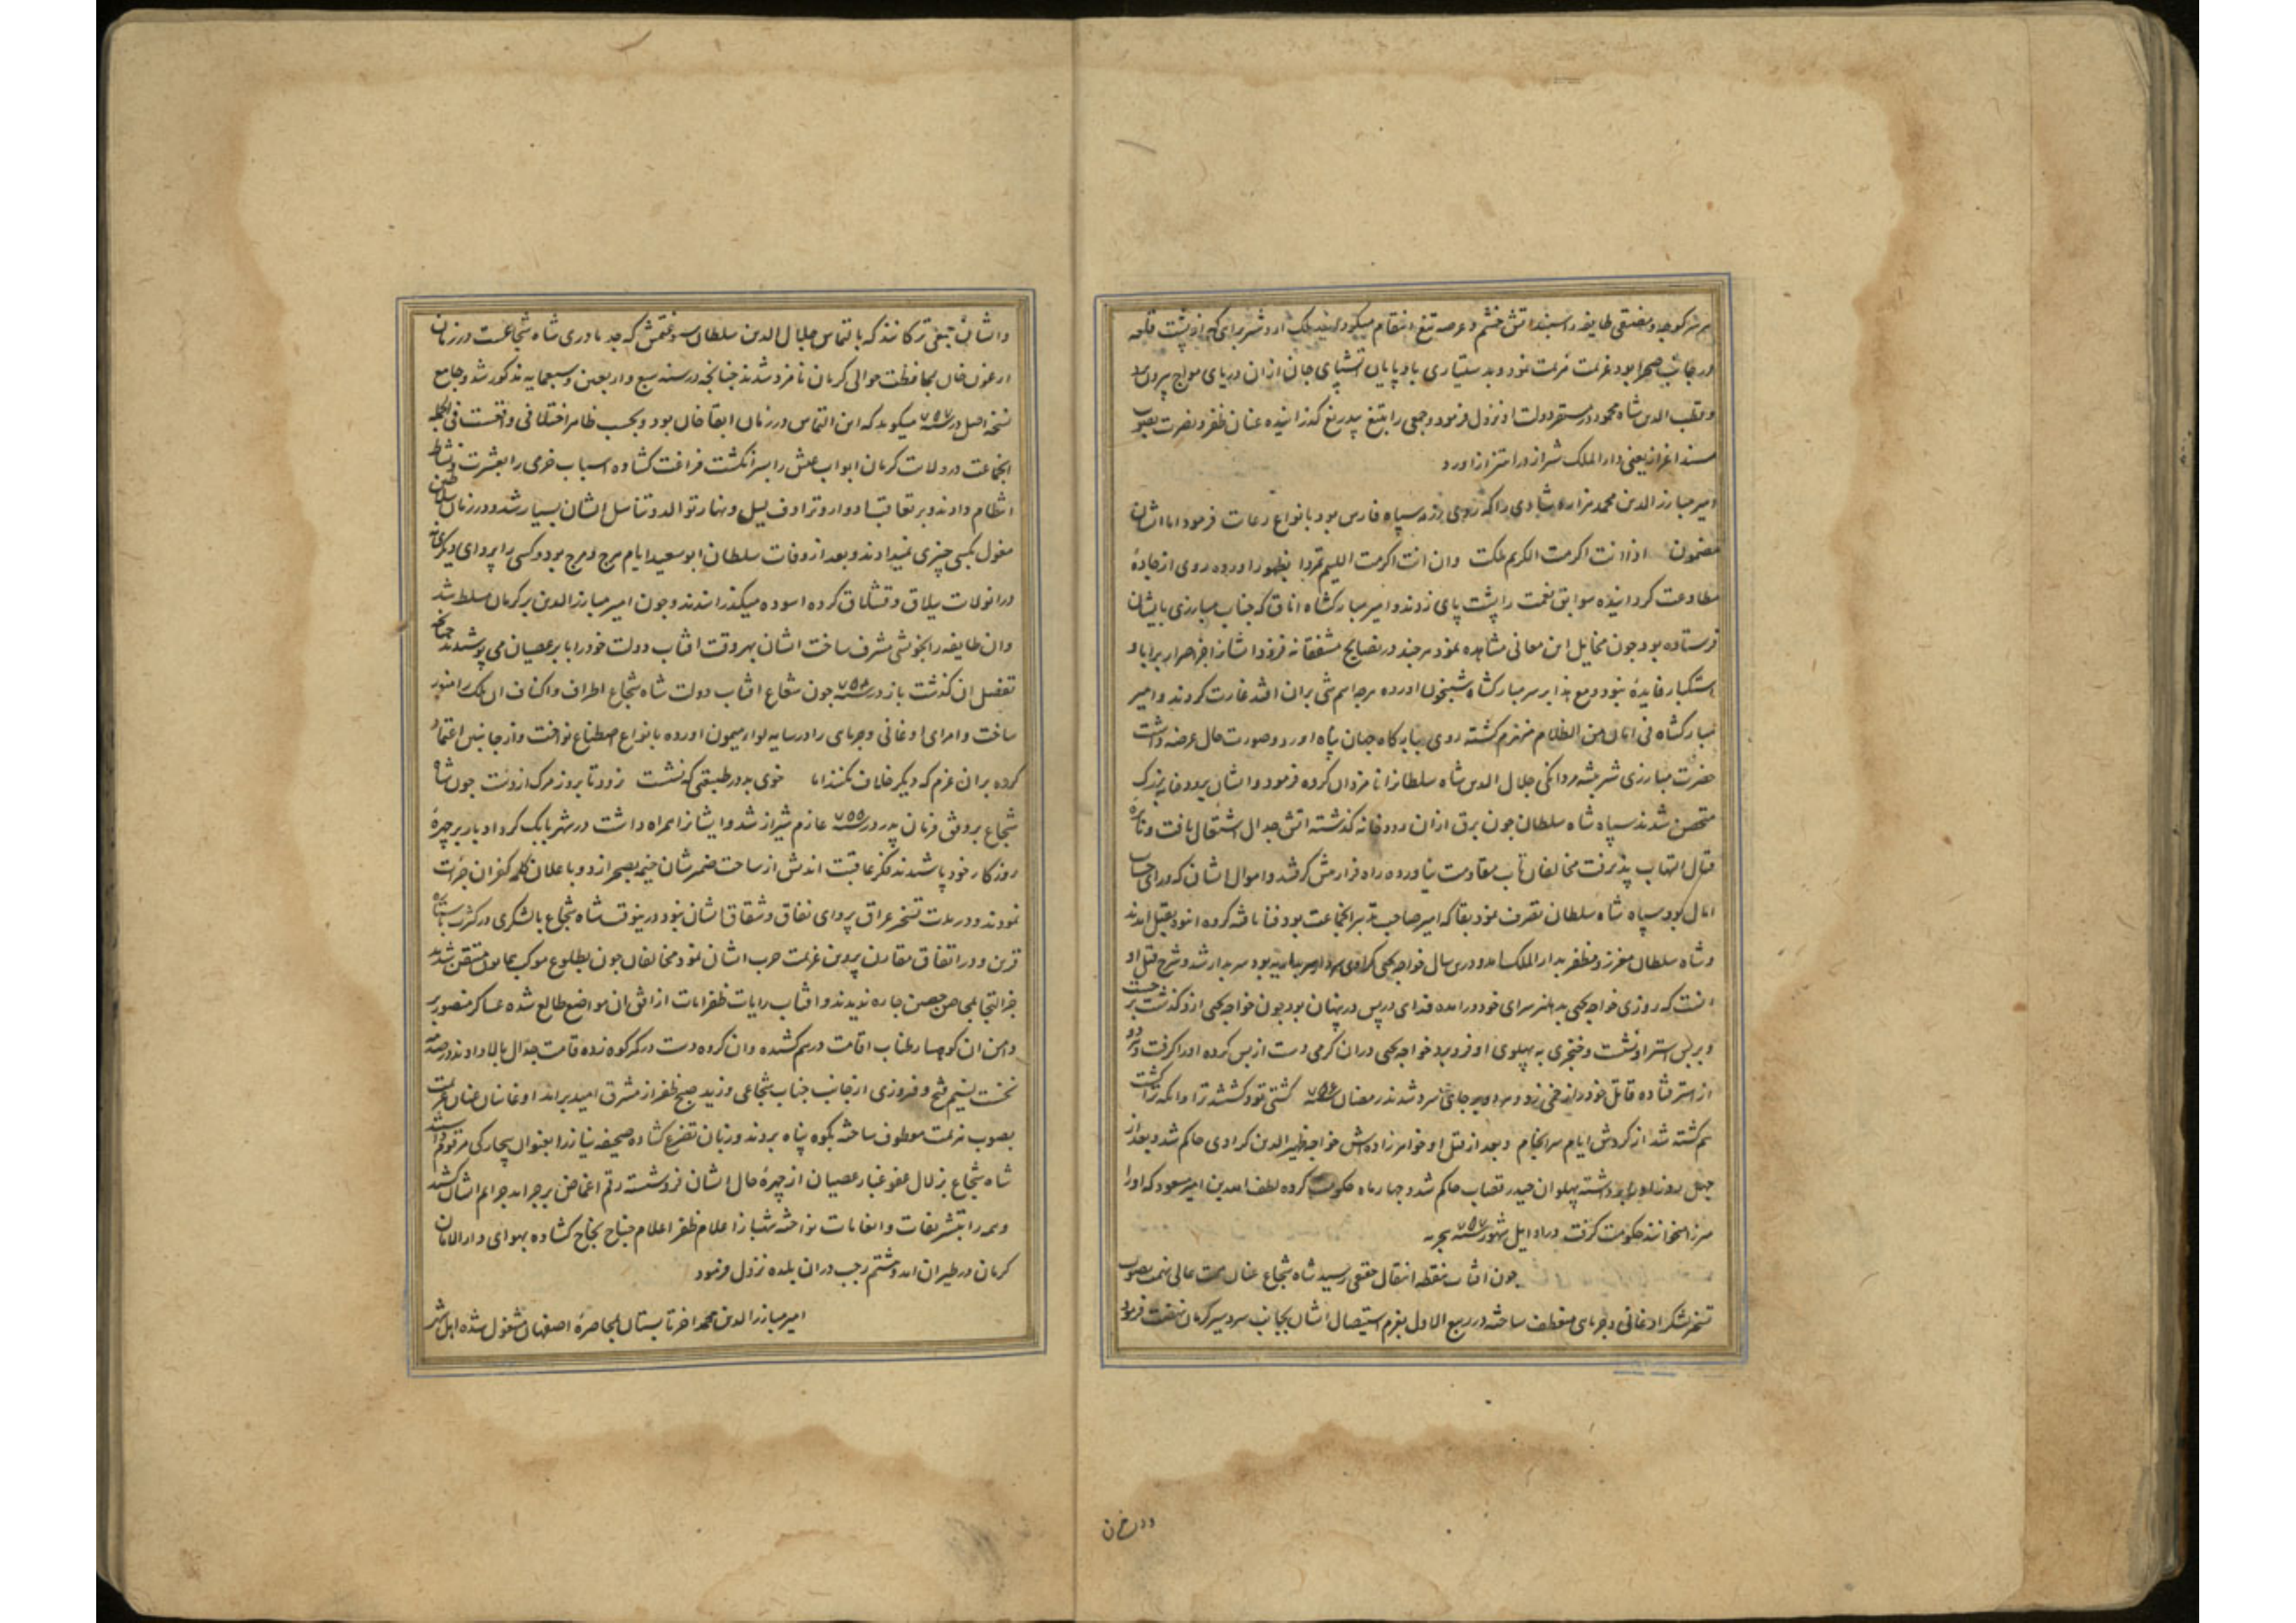 در جانب صحرا بود عزیمت هزیمت نمود و بدستیاری باد پایان آتش پای جان ازان دریای مواج بیرون برد
و قطب الدین شاه محمود در مستقر دولت او نزول فرمود و جمعی را بتیغ بیدریغ گذرانیده عنان ظفر و نصرت بصوب
مسند اعزاز یعنی دار الملک شیراز در اهتزاز آورد
امیر مبارز الدین محمد هزاره شادی را که سپاه فارس بود بانواع رعایت فرمود اما ایشان
مضمون اذا انت اکرمت الکریم ملکت وان انت اکرمت اللییم تمردا بظهور آورده روی از جادهٔ
مطاوعت گردانیده سوابق نعمت را پشت پای زدند و امیر مبارکشاه اناق که جناب مبارزی بایشان
فرستاده بود چون مخایل این معانی مشاهده نمود هرچند در نصایح مشفقانه فزود ایشانرا جز اصرار بر ابا و
استکبار فایدهٔ نبود و مع هذا بر سر مبارکشاه شبیخون آورده هرچه اسم شی بران افتد غارت کردند و امیر
مبارکشاه فی امان من الظلام منهزم گشته روی ببارگاه جهان پناه آورد و صورت حال عرضه داشت
حضرت مبارزی شیر بیشه مردانگی جلال الدین شاه سلطانرا نامزد آن گروه فرمود و ایشان برودخانه بزرگ
متحصن شدند سپاه شاه سلطان چون برق ازان رودخانه گذشته آتش جدال اشتعال یافت و نایرهٔ
قتال التهاب پذیرفت مخالفان تاب مقاومت نیاورده راه فرار پیش گرفتند و اموال ایشان که ورای حساب
آمال بود سپاه شاه سلطان تصرف نمود بقا که امیر صاحب تدبیر آنجماعت بود فنا یافته گروه انبوه بقتل آمدند
و شاه سلطان معزز و مظفر بدار الملک آمد و درین سال خواجه یحیی کراوی که سردار سربداریه بود سر بدار شد و شرح قتل او
آنست که روزی خواجه یحیی بدهلیز سرای خود در آمده فدای در پس در پنهان بود چون خواجه یحیی ازو گذشت برجست
و بر پس استر او نشست و خنجری به پهلوی او فرو برد خواجه یحیی دران گرمی دست از پس کرده او را گرفت و هر دو
از استر فتاده قاتل خود را زخمی زد و هر دو بر جای سرد شدند در رمضان سنه ۷۵۶ کشتی تو و کشتند ترا وانکه ترا کشت
هم کشته شد از گردش ایام سرانجام و بعد از قتل او خواهرزاده‌اش خواجه ظهیر الدین کراوی حاکم شد و بعد از
چهل روز او را برداشته پهلوان حیدر قصاب حاکم شد و چهار ماه حکومت کرده لطف الله بن امیر مسعود که او را
میرزا میخوانند حکومت گرفت در اوایل شهور سنه ۷۵۷ هجریه
چون آفتاب بنقطه انتقال حقیقی رسید شاه شجاع عنان همت عالی نهمت بصوب
تسخیر لشکر اوغانی و جرمای منعطف ساخته در ربیع الاول بعزم استیصال ایشان بجانب سردسیر کرمان نهضت فرمود
و ایشان
و ایشان بقیه ترکانند که بالتماس جلال الدین سلطان سیورغتمش که جد مادری شاه شجاعست در زمان
ارغون خان بمحافظت حوالی کرمان نامزد شدند چنانچه در سنه سبع و اربعین و سبعمایه مذکور شد و جامع
نسخه اصل در سنه ۷۵۷ میگوید که این التماس در زمان ابقا خان بود و بحسب ظاهر اختلافی واقعست فی الجمله
آنجماعت در ولایت کرمان ابواب عیش را بسر انگشت فراغت گشاده اسباب خرمی را بعشرت و نشاط
انتظام دادند و بر تعاقب ادوار و ترادف لیل و نهار توالد و تناسل ایشان بسیار شد و در زمان سلاطین
مغول بکسی چیزی نمیدادند و بعد از وفات سلطان ابو سعید ایام هرج و مرج بود و کسی را پروای دیگری نه
در انولایت ییلاق و قشلاق کرده آسوده میگذرانیدند و چون امیر مبارز الدین بر کرمان مسلط شد
و آن طایفه را بخویشی مشرف ساخت ایشان بهر وقت آفتاب دولت خود را بابر عصیان می پوشیدند چنانچه
تفصیل آن گذشت باز در سنه ۷۵۴ چون شعاع آفتاب دولت شاه شجاع اطراف و اکناف آن ملک را منور
ساخت و امرای اوغانی و جرمای را در سایه لواء میمون آورده بانواع اصطناع نواخت و از جانبین اعتماد
کرده بران عزم که دیگر خلاف نکنند اما خوی بد در طبیعتی که نشست نرود تا بروز مرگ از دست چون شاه
شجاع بر وفق فرمان پدر در سنه ۷۵۵ عازم شیراز شد و ایشانرا همراه داشت در شهر بابک گرد ادبار بر چهرهٔ
روزگار خود پاشیدند فکر عاقبت اندیش از ساحت ضمیرشان خیمه بصحرا زد و باعلان کلمه کفران جرات
نمودند و در مدت تسخیر عراق پروای نفاق و شقاق ایشان نبود درینوقت شاه شجاع بالشکری در کثرت باستاره
قرین و در اتفاق مقارن پروین عزیمت حرب ایشان نمود مخالفان چون بطلوع موکب همایون متیقن شدند
جز التجا بمحاصن حصین چاره ندیدند و آفتاب رایات ظفر آیات از افق آن مواضع طالع شده عساکر منصور بر
دامن آن کوهسار طناب اقامت درهم کشیده و آن گروه دست در کمر کوه زده قامت جدال بالا دادند در صدمه
نخست نسیم فتح و فیروزی از جانب جناب شجاعی وزید صبح ظفر از مشرق امید بر آمد اوغانیان عنان عزیمت
بصوب هزیمت معطوف ساخته بکوه پناه بردند و زبان تضرع گشاده صحیفه نیاز را بعنوان بیچارگی مرقوم داشتند
شاه شجاع بزلال عفو غبار عصیان از چهرهٔ حال ایشان فرو شسته رقم اغماض بر جراید جرایم ایشان کشید
و همه را بتشریفات و انعامات نواخته شهباز اعلام ظفر اعلام جناح نجاح گشاده بهوای دار الامان
کرمان در طیران آمد و هشتم رجب دران بلده نزول فرمود
امیر مبارز الدین محمد آخر تابستان بمحاصرهٔ اصفهان مشغول شده اهل شهر